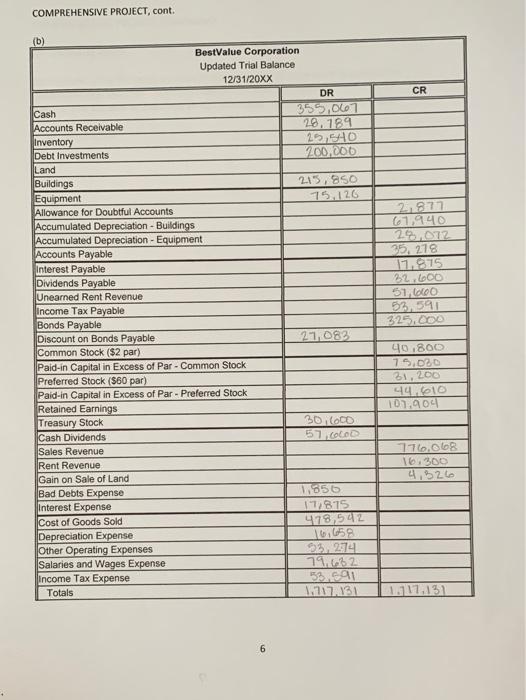 COMPREHENSIVE PROJECT, cont.
(b)
BestValue Corporation
Updated Trial Balance
12/31/20XX
DR CR
Cash 355,067
Accounts Receivable 28,789
Inventory 25,540
Debt Investments 200,000
Land
Buildings 215,850
Equipment 75,126
Allowance for Doubtful Accounts 2,877
Accumulated Depreciation - Buildings 67,940
Accumulated Depreciation - Equipment 28,072
Accounts Payable 35,278
Interest Payable 17,875
Dividends Payable 32,600
Unearned Rent Revenue
Income Tax Payable 53,591
Bonds Payable 325,000
Discount on Bonds Payable 27,083
Common Stock ($2 par) 40,800
Paid-in Capital in Excess of Par - Common Stock 75,030
Preferred Stock ($60 par) 31,200
Paid-in Capital in Excess of Par - Preferred Stock 44,610
Retained Earnings 107,904
Treasury Stock 30,600
Cash Dividends
Sales Revenue 776,068
Rent Revenue 16,300
Gain on Sale of Land 4,326
Bad Debts Expense 1,850
Interest Expense 17,875
Cost of Goods Sold 478,542
Depreciation Expense 16,658
Other Operating Expenses 53,274
Salaries and Wages Expense 79,632
Income Tax Expense 53,591
Totals 1,717,131 1,717,131
6